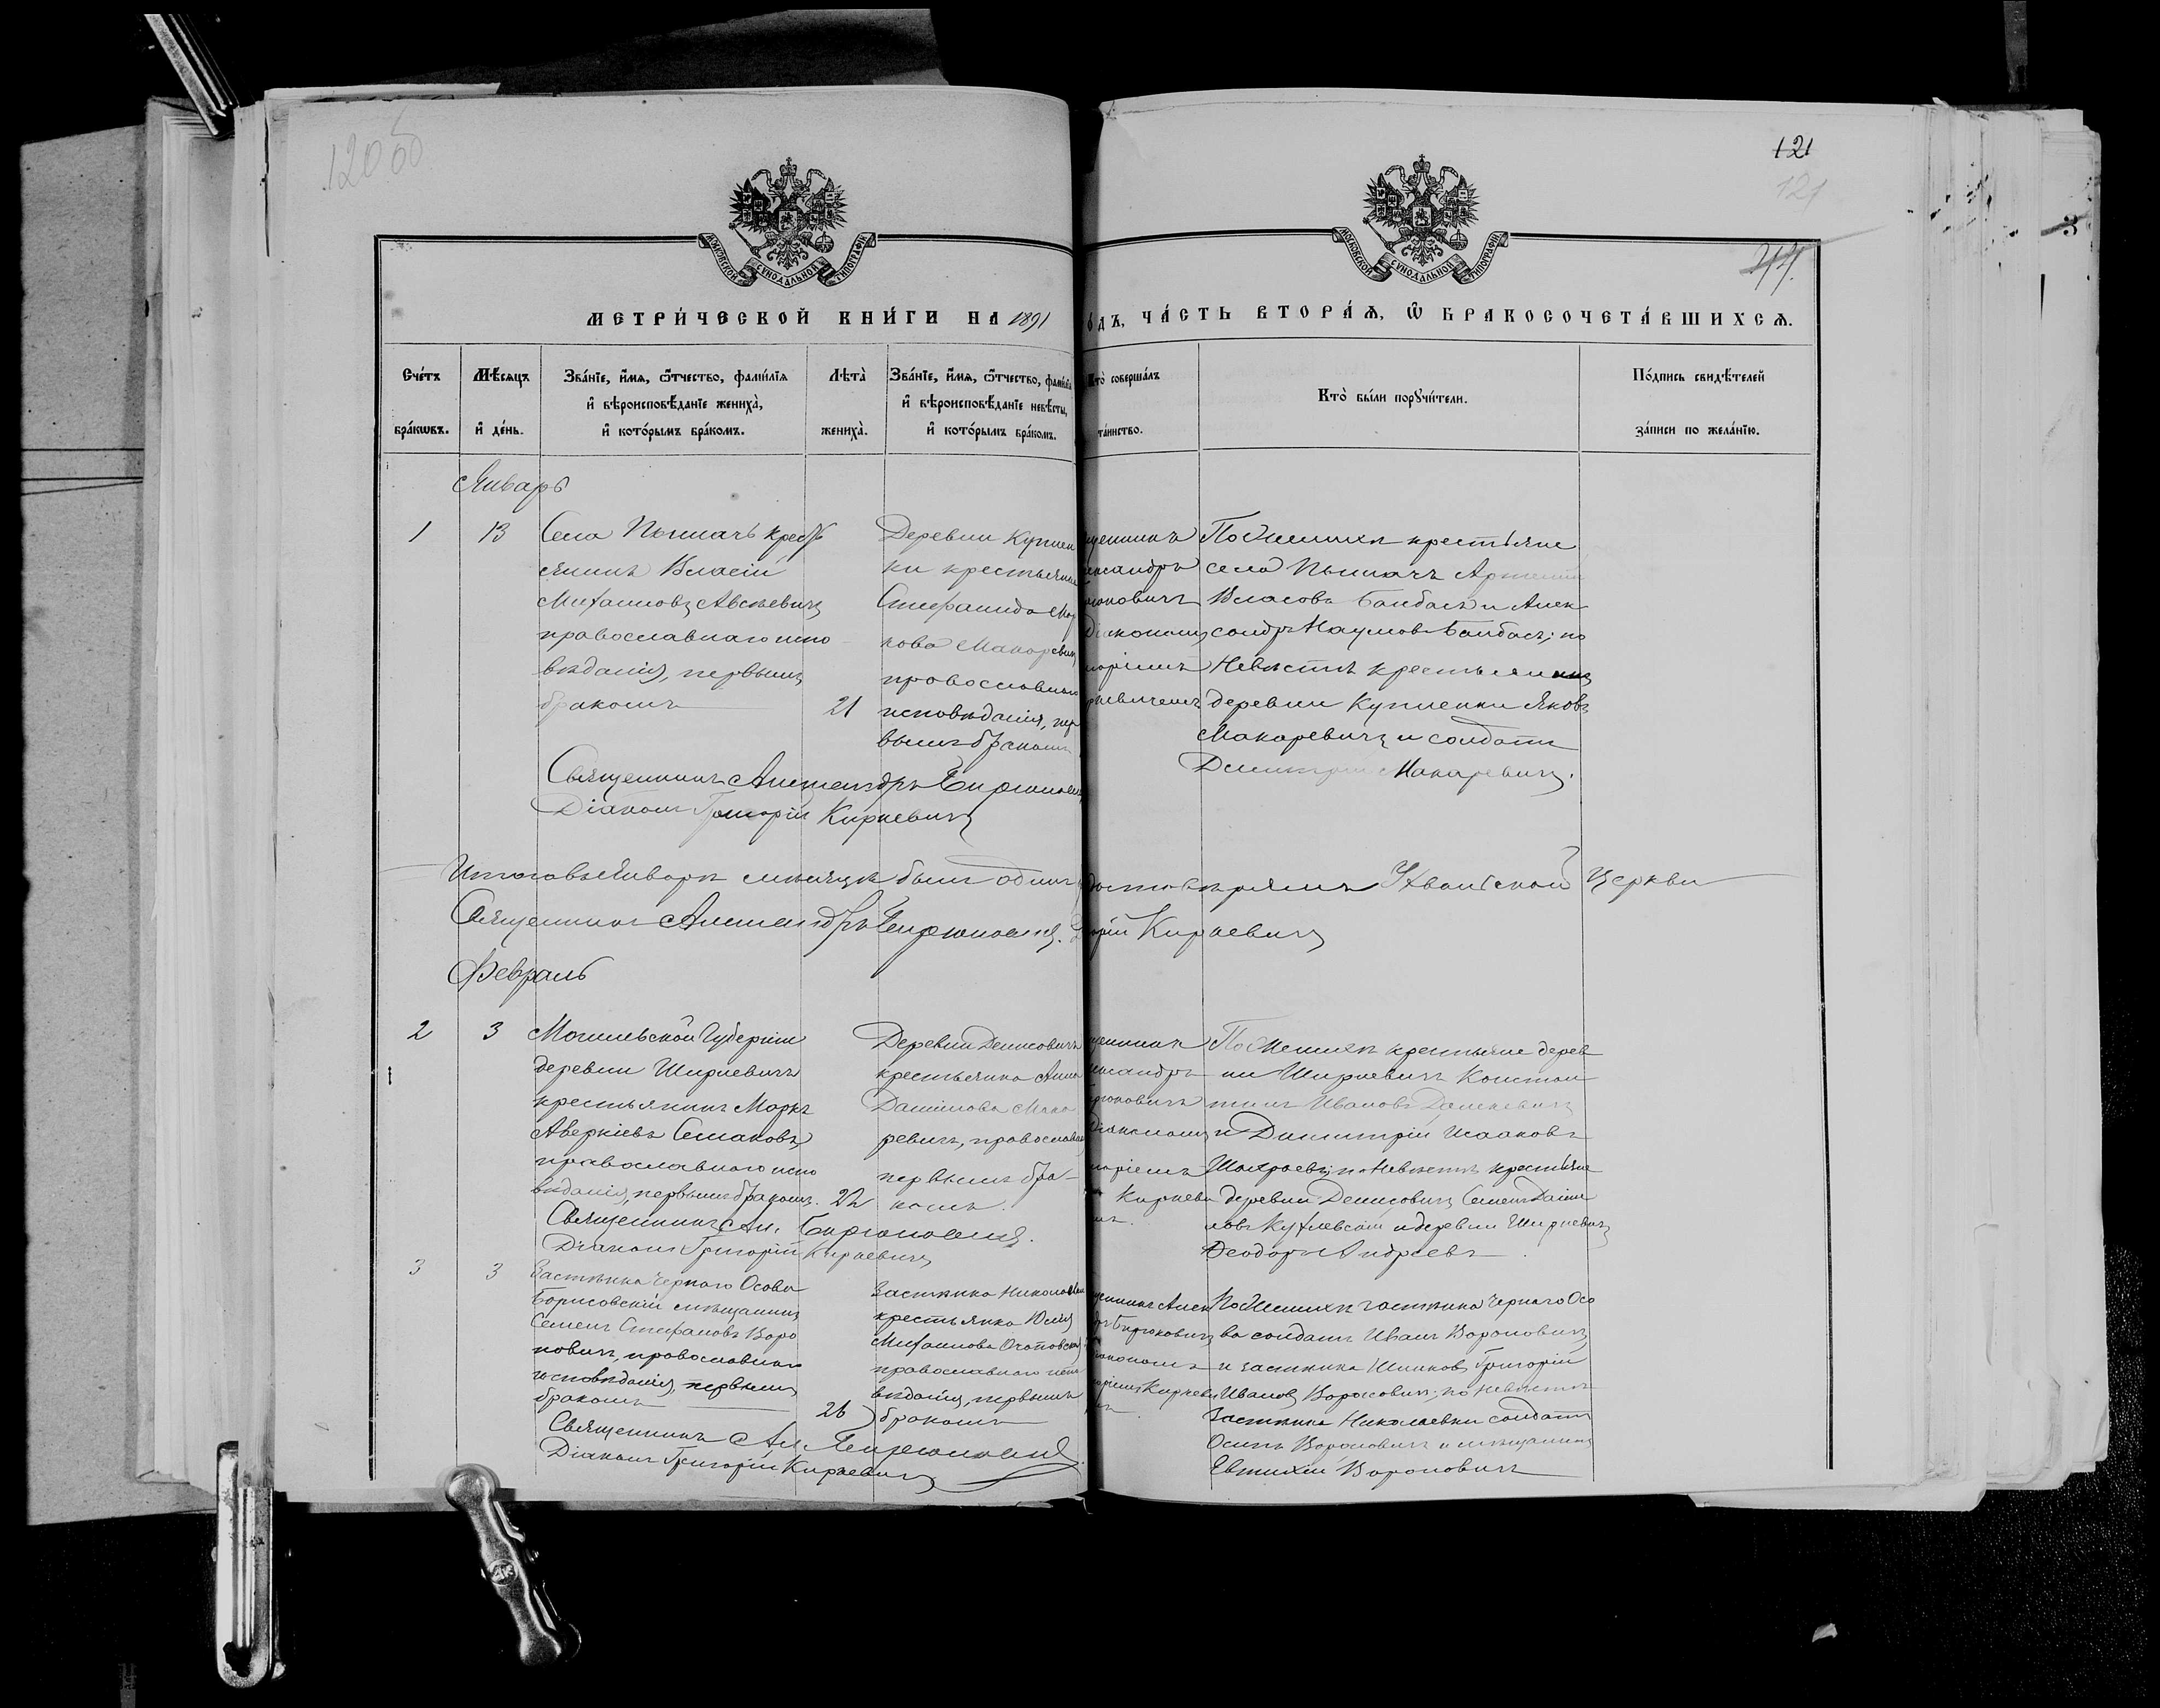 120 об
121
121
МОСКОВСКОЙ СѴНОДАЛЬНОЙ ТИПОГРАФІИ
МОСКОВСКОЙ СѴНОДАЛЬНОЙ ТИПОГРАФІИ
МЕТРИ́ЧЕСКОЙ КНИ́ГИ НА 1891
ѻ́дъ, ЧА́СТЬ ВТОРА́Ѧ, Ѡ҆ БРАКОСОЧЕТА́ВШИХСѦ.
Сче́тъ бра́кѡвъ.
Мѣ́сѧцъ и҆ де́нь.
Зва́нїе, и҆́мѧ, ѻ҆́тчество, фами́лїѧ
и҆ вѣроисповѣ́данїе жениха̀,
и҆ кото́рымъ бра́комъ.
Лѣта̀ жениха̀.
Зва́нїе, и҆́мѧ, ѻ҆́тчество, фами́лїѧ
и҆ вѣроисповѣ́данїе невѣ́сты,
и҆ кото́рымъ бра́комъ.
Кто̀ соверша́лъ
та́инство.
Кто̀ бы́ли порꙋчи́тели.
По́дпись свидѣ́телей
за́писи по жела́нїю.
Январь
1
13
Села Пышачь кресть
янинъ Власій
Михаиловъ
православнаго испо
вѣданія, первымъ
бракомъ
21
Деревни
ки крестьянка
Стефанида Мар
кова Макаревичъ
православнаго
исповѣданія, пер
вымъ бракомъ
щенникъ
ександръ
рюковичъ
Діакономъ
горіемъ
ркевичемъ
По Женихѣ крестьяне
села Пышачъ Артемій
Власовъ Бамбась и Алек
сандръ Наумовъ Бамбась; по
Невѣстѣ крестьянинъ
деревни Яковъ
Макаревичъ и солдатъ
Димитрій Макаревичъ.
Священникъ Александръ Бирюковичъ
Діаконъ Григорій Киркевичъ
Итого въ Январѣ мѣсяцѣ былъ одинъ
Церкви
Священникъ Александръ Бирюковичъ.
горій Киркевичъ
Февраль
2
3
Могилевской Губерніи
деревни Ширневичъ
крестьянинъ Маркъ
Аверкіевъ Семаковъ
православнаго испо
вѣданія, первымъ бракомъ.
22
Деревни Денисовичъ
крестьянка Анна
Даніилова Мака
ревичъ, православнаго
первымъ бра-
комъ.
щенникъ
ександръ
рюковичъ
Діакономъ
горіемъ
Киркеви
По Женихѣ крестьяне дерев
ни Ширневичъ Констан
тинъ Ивановъ
и Димитрій Исааковъ
по Невѣстѣ крестьяне
деревни Денисовичъ Семенъ Даніи
ловъ и деревни Ширневичъ
Ѳеодоръ Андреевъ
Священникъ Ал. Бирюковичъ.
Діаконъ Григорій Киркевичъ
3
3
Застѣнка Чернаго Осова
Борисовскій мѣщанинъ
Семенъ Стефановъ Воро
новичъ, православнаго
исповѣданія, первымъ
бракомъ
26
Застѣнка Николаевки
крестьянка Юлія
Михаилова
православнаго испо
вѣданія, первымъ
бракомъ
щенникъ Алек
дръ Бирюковичъ
іакономъ
горіемъ Киркеви
По Женихѣ застѣнка Чернаго Осо
ва солдатъ Иванъ Вороновичъ
и застѣнка Григорій
Ивановъ Вороновичъ; по Невѣстѣ
Застѣнка Николаевки солдатъ
Осипъ Вороновичъ и мѣщанинъ
Евтихій Вороновичъ
Священникъ Ал. Бирюковичъ
Діаконъ Григорій Киркевичъ